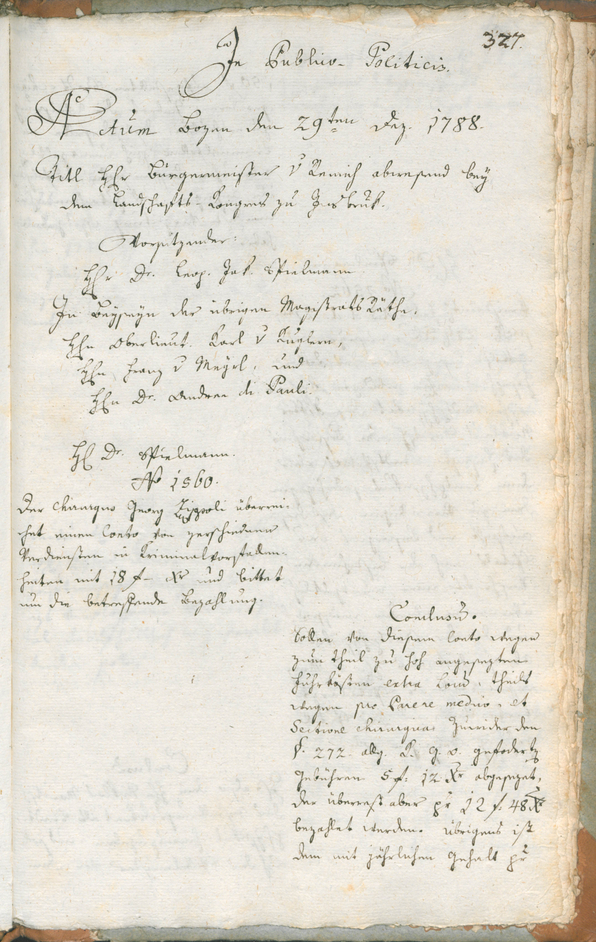 327.
In Publico-Politicis.
Actum Bozen den 29ten Dez. 1788.
Titl HHr Bürgermeister v Remich abwesend bey
dem Landschafts-Kongres zu Insbruk.
Vorsitzender:
HHr Dr. Leop. Jak Spielmann
In Beyseyn der übrigen MagistratsRäthe,
HHn Oberlieut. Karl v Kuglern,
HHn Franz v Mayrl, und
HHn Dr. Andree di Pauli.
HH Dr. Spielmann.
No 1560.
Der Chirurgus Georg Zippoli überrei-
chet einen Conto von verschiedenen
Verdiensten in Kriminalvorfallen-
heiten mit 18 f – Xr und bittet
um die betreffende Bezahlung.
Conclusum.
Sollen von diesem Conto wegen
zum theil zu hoch angesezten
Fuhrkösten extra Land, theils
wegen pro Parere medico, et
Sectione chirurgica zuwider den
§. 272. allg. K. G. O. geforderten
Gebühren 5 f. 12 Xr abgesezet,
der Überrest aber pr 12 f. 48 Xr
bezahlet werden. Übrigens ist
dem mit jährlichem Gehalt pr